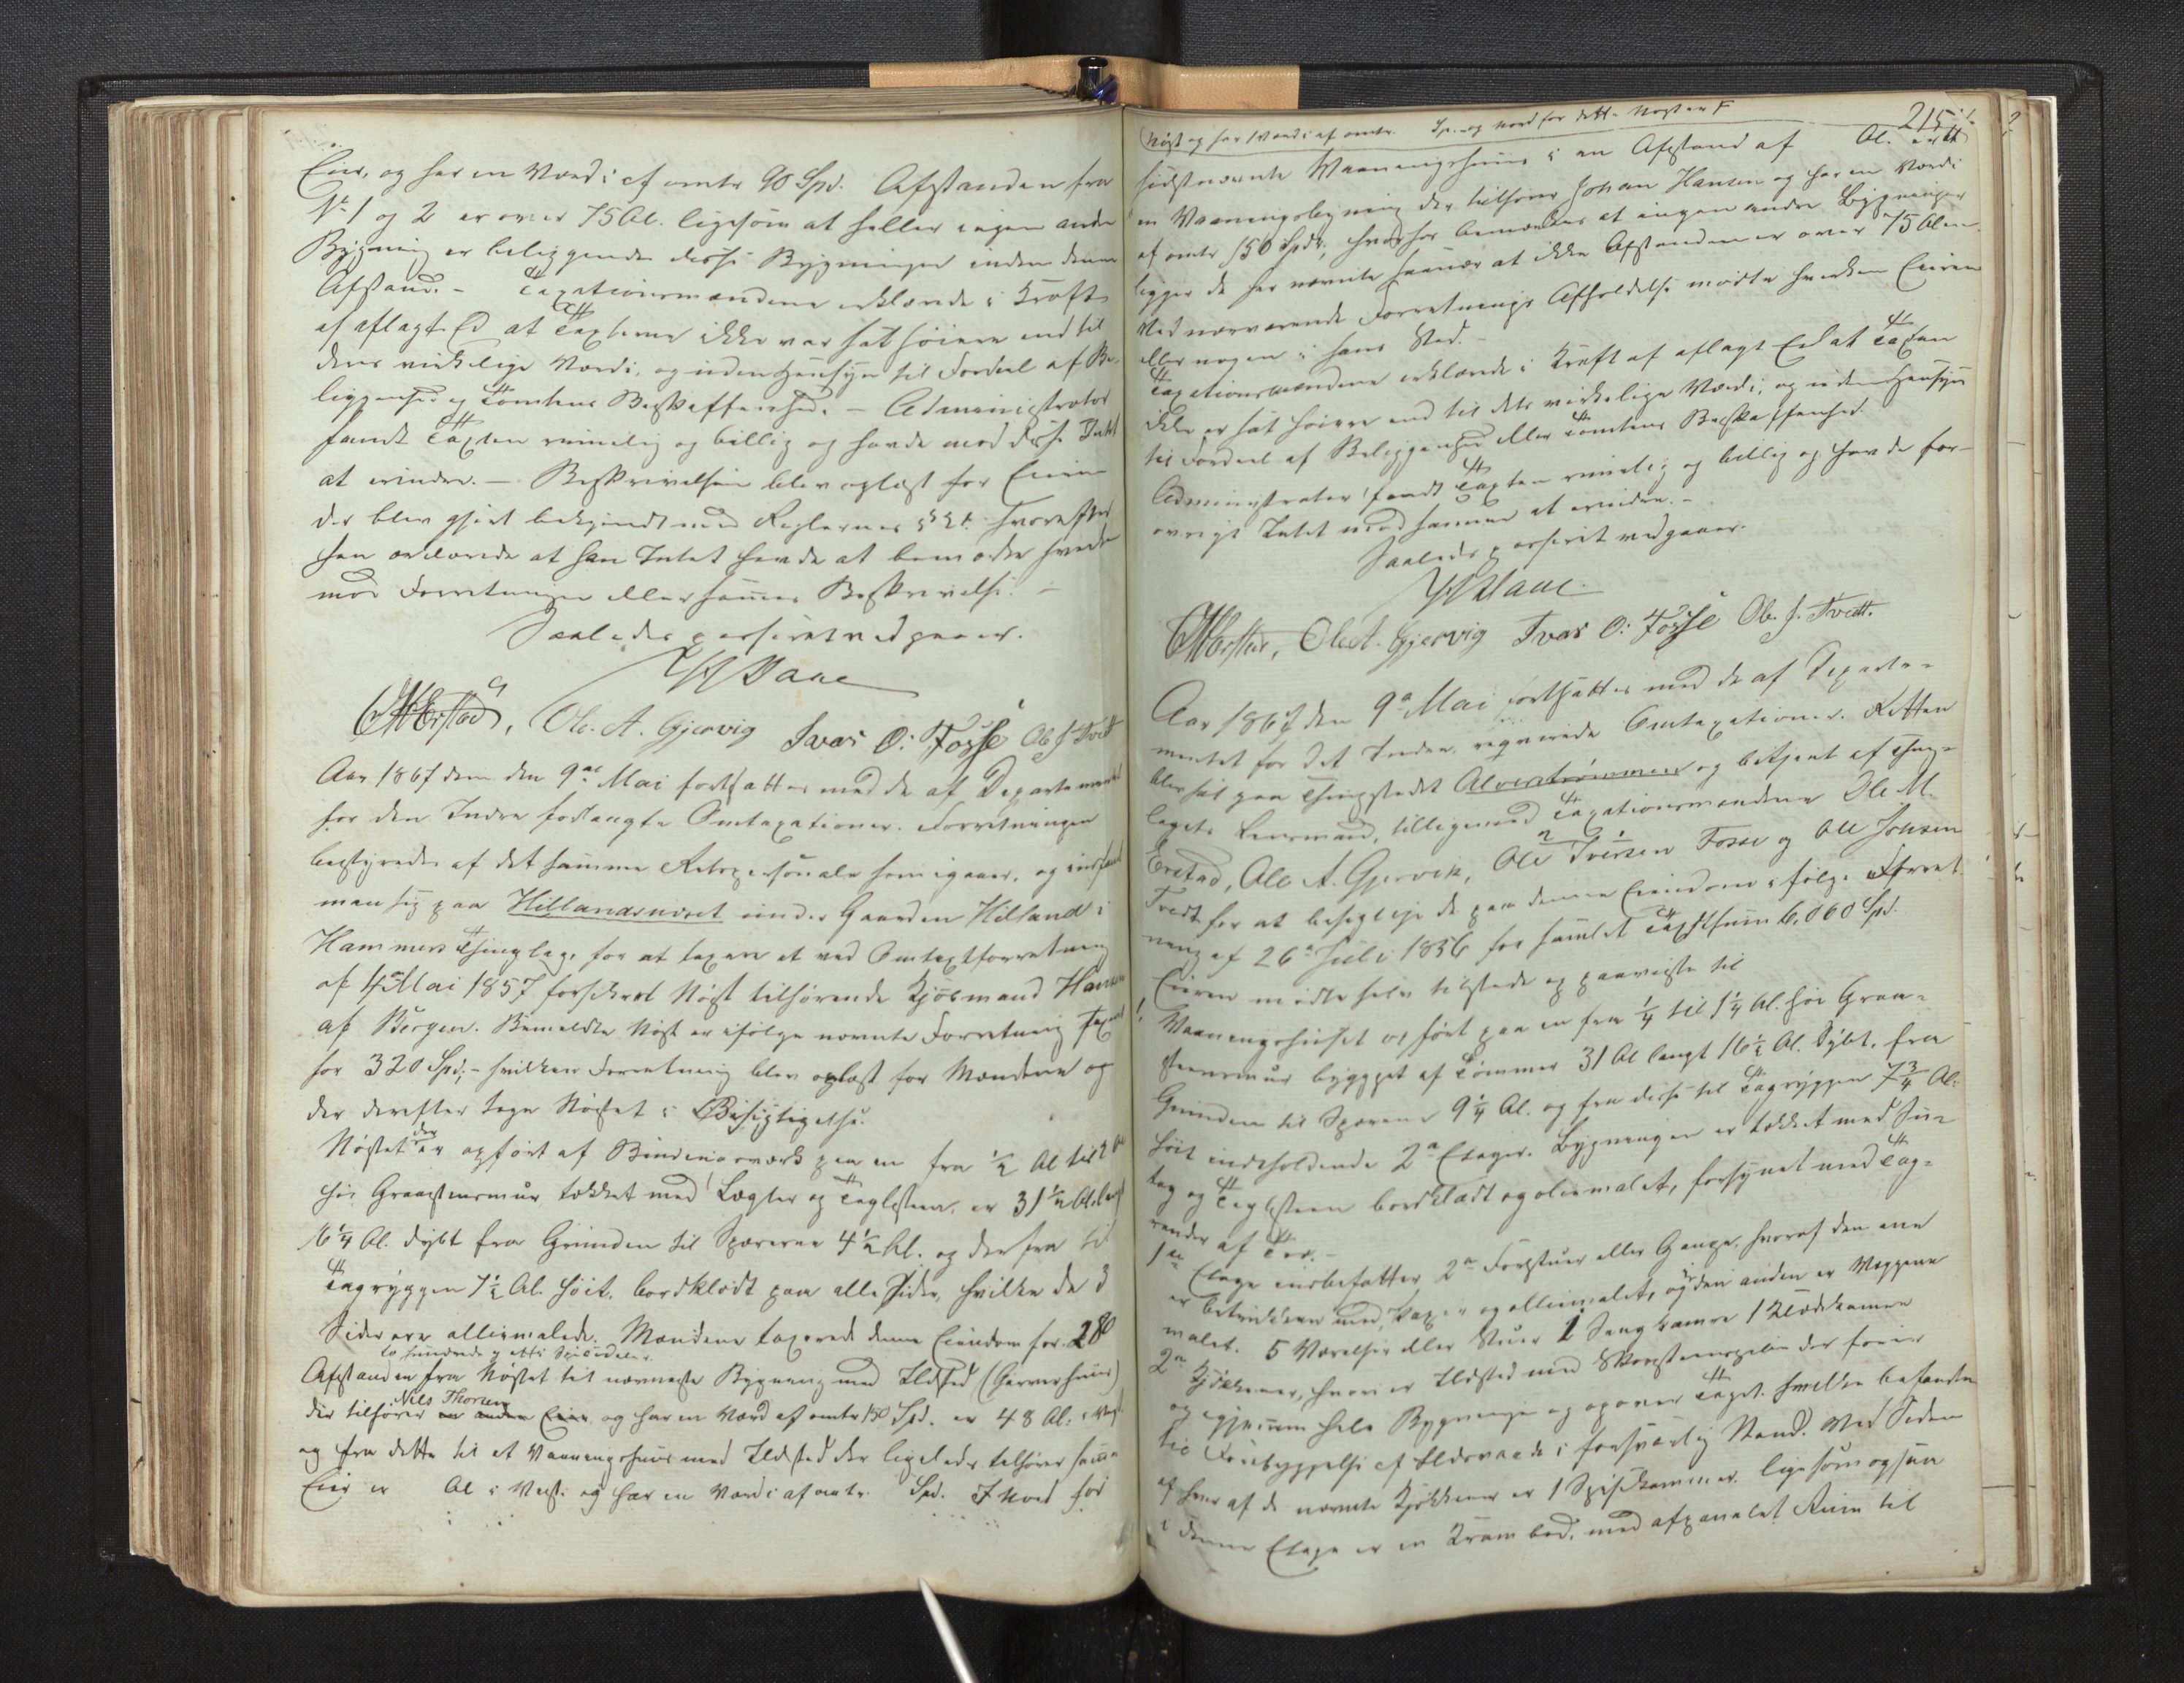 Eier, og har en Værdi af omtr 90 Spd. Afstanden fra
No 1 og 2 er over 75 Al. ligesom at heller ingen anden
Bygning er beliggende disse Bygninger inden denne
Afstand. – Taxationsmændene erklærede i Kraft
af aflagt Ed at Taxterne ikke var sat høiere end til
dens virkelige Værdi, og uden Hensyn til Fordeel af Be-
liggenhed og Tomtens Beskaffenhed. – Administrator
fandt Taxten rimelig og billig og havde mod disse Intet
at erindre. – Beskrivelsen blev oplæst for Eieren
der blev gjort bekjendt med Reglerne hvorefter
han erklærede at han Intet havde at bemærke hverken
mod Forretningen eller sammes Beskrivelse. –
Saaledes passeret vedgaaes.
Ole. A. Gjervig Ivar O: Fosse Ob J Tvedt
Aar 1867 den 9de Mai fortsattes med de af Departementet
for det Indre forlangte Omtaxationer. Forretningen
bestyredes af det samme Retspersonale som igaar, og indfandt
man sig paa Hillandsnæset under Gaarden Hilland i
Hammers Thinglag, for at taxere et ved Omtaxtforretning
af 4de Mai 1857 forsikret Nøst tilhørende Kjøbmand Hansen
af Bergen. Bemeldte Nøst er ifølge nævnte Forretning Taxeret
for 320 Spd; – hvilken Forretning blev oplæst for Mændene og
der derefter toge Nøstet i Besigtigelse.
Nøstet der er opført af Bindingsværk paa en fra ½ Al til 2 Al
høi Graasteensmuur, tækket med Lægter og Tagsteen, er 31½ Al. langt
16¼ Al. dybt fra Grunden til Sparrerne 4½ Al. og derfra til
Tagryggen 7½ Al. høit, bordklædt paa alle Sider, hvilke de 3
Sider ere olliemalede. Mændene taxerede denne Eiendom for 280
to hundrede og otti Speciedaler.
Afstanden fra Nøstet til nærmeste Bygning med Ildsted (Garverhuus)
der tilhører Nils Thorsen en anden Eier, og har en Værd af omtr 150 Spd. er 48 Al: i Vest
og fra dette til et Vaaningshuus med Ildsted der ligeledes tilhører samme
Eier er Al i Vest. og har en Værdi af omtr. Spd. I Nord for
215
(Nøst og har Værdi af omtr. Sp. og Nord for dette Nøst er F
sidstnævnte Vaaningshuus i en Afstand af Al. er et
en Vaaningsbygning der tilhører Johan Hansen og har en Værdi
af omtr 150 Spd, hvorhos bemærkes at ingen andre Bygninger
ligger de her nævnte saa nær at ikke Afstanden er over 75 Alen.
Ved nærværende Forretnings Afholdelse mødte hverken Eieren
eller nogen i hans Sted. –
Taxationsmændene erklærede i Kraft af aflagt Ed at Taxten
ikke er sat høiere end til dets virkelige Værdi, og uden Hensyn
til Fordeel af Beliggenhed eller Tomtens Beskaffenhed.
Administrator fandt Taxten rimelig og billig og havde for-
øvrigt Intet mod samme at erindre. –
Saaledes passeret vedgaaes.
Ole A. Gjervig Ivar O: Fosse Ob. J. Tvedt.
Aar 1867 den 9de Mai fortsattes med de af Departe-
mentet for det Indre, reqvirerede Omtaxationer. Retten
blev sat paa Thingstedet Alverstrømmen og betjent af Thing-
lagets Lensmand, tilligemed Taxationsmændene Ole M.
Erstad, Ole A. Gjervik, Ole Iversen Fosse og Ole Johsen
Tvedt for at besigtige de paa denne Eiendom i følge Forret-
ning af 26de Juli 1856 for samlet Taxtsum 6,060 Spd.
Eieren mødte selv tilstede og paaviste til
Vaaningshuset opført paa en fra ¼ til 1¼ Al. høi Graa-
steensmuur bygget af Tømmer 31 Al langt 16½ Al. dybt, fra
Grunden til Sparrerne 9¼ Al. og fra disse til Tagryggen 7¾ Al.
høit indeholdende 2de Etager. Bygningen er tækket med Su-
tag og Tagsteen bordklædt og oliemalet, forsynet med Tag-
render af Træ. –
1ste Etage indbefatter 2de Forstuer eller Gange, hvoraf den ene
er betrukken med Papir og olliemalet, og i den anden er Væggene
malet. 5 Værelser eller Stuer 1 Sengkamre 1 Klædekammer
2de Kjøkkener, hvori er Ildsted med Skorsteenspiber der fører
op igjennem hele Bygningen og op over Taget. hvilke befandtes
til Forebyggelse af Ildsvaade i forsvarlig Stand. Ved Siden
af hver af de nævnte Kjøkkener er 1 Spisekammer ligesom ogsaa
i denne Etage er en Krambod, med afpanelet Rum til